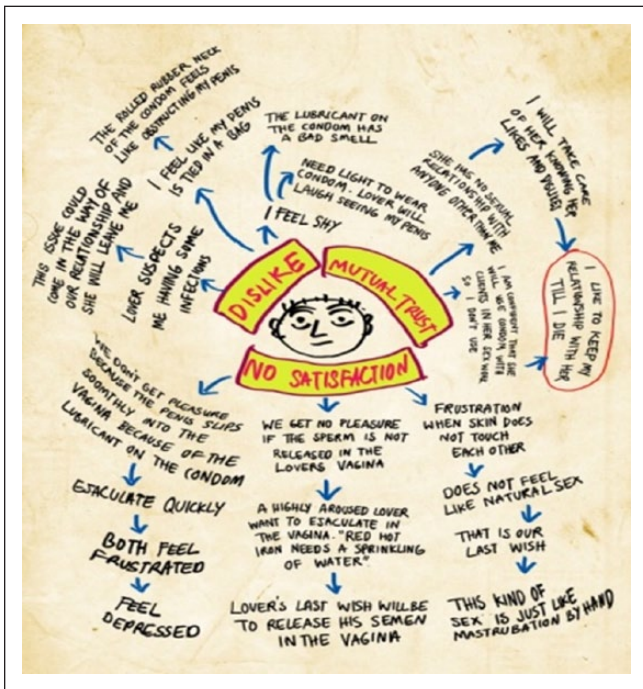 THE ROLLED RUBBER NECK
OF THE CONDOM FEELS
LIKE OBSTRUCTING MY PENIS
I FEEL LIKE MY PENIS
IS TIED IN A BAG
THE LUBRICANT ON
THE CONDOM HAS
A BAD SMELL
NEED LIGHT TO WEAR
CONDOM. LOVER WILL
LAUGH SEEING MY PENIS
I FEEL SHY
THIS ISSUE COULD
COME IN THE WAY OF
OUR RELATIONSHIP AND
SHE WILL LEAVE ME
LOVER SUSPECTS
ME HAVING SOME
INFECTIONS
DISLIKE
MUTUAL TRUST
SHE HAS NO SEXUAL
RELATIONSHIP WITH
ANYONE OTHER THAN ME
I WILL TAKE CARE
OF HER KNOWING HER
LIKES AND
I AM CONFIDENT THAT SHE
WILL USE CONDOM WITH
CLIENTS IN HER SEX WORK
SO I DON'T USE
I LIKE TO KEEP MY
RELATIONSHIP WITH HER
TILL I DIE
NO SATISFACTION
WE DON'T GET PLEASURE
BECAUSE THE PENIS SLIPS
SOOMTHLY INTO THE
VAGINA BECAUSE OF THE
LUBRICANT ON THE CONDOM
EJACULATE QUICKLY
BOTH FEEL
FRUSTRATED
FEEL
DEPRESSED
WE GET NO PLEASURE
IF THE SPERM IS NOT
RELEASED IN THE
LOVERS VAGINA
A HIGHLY AROUSED LOVER
WANT TO EJACULATE IN
THE VAGINA. "RED HOT
IRON NEEDS A SPRINKLING
OF WATER"
LOVER'S LAST WISH WILL BE
TO RELEASE HIS SEMEN
IN THE VAGINA
FRUSTRATION
WHEN SKIN DOES
NOT TOUCH
EACH OTHER
DOES NOT FEEL
LIKE NATURAL SEX
THAT IS OUR
LAST WISH
THIS KIND OF
SEX IS JUST LIKE
MASTRUBATION BY HAND